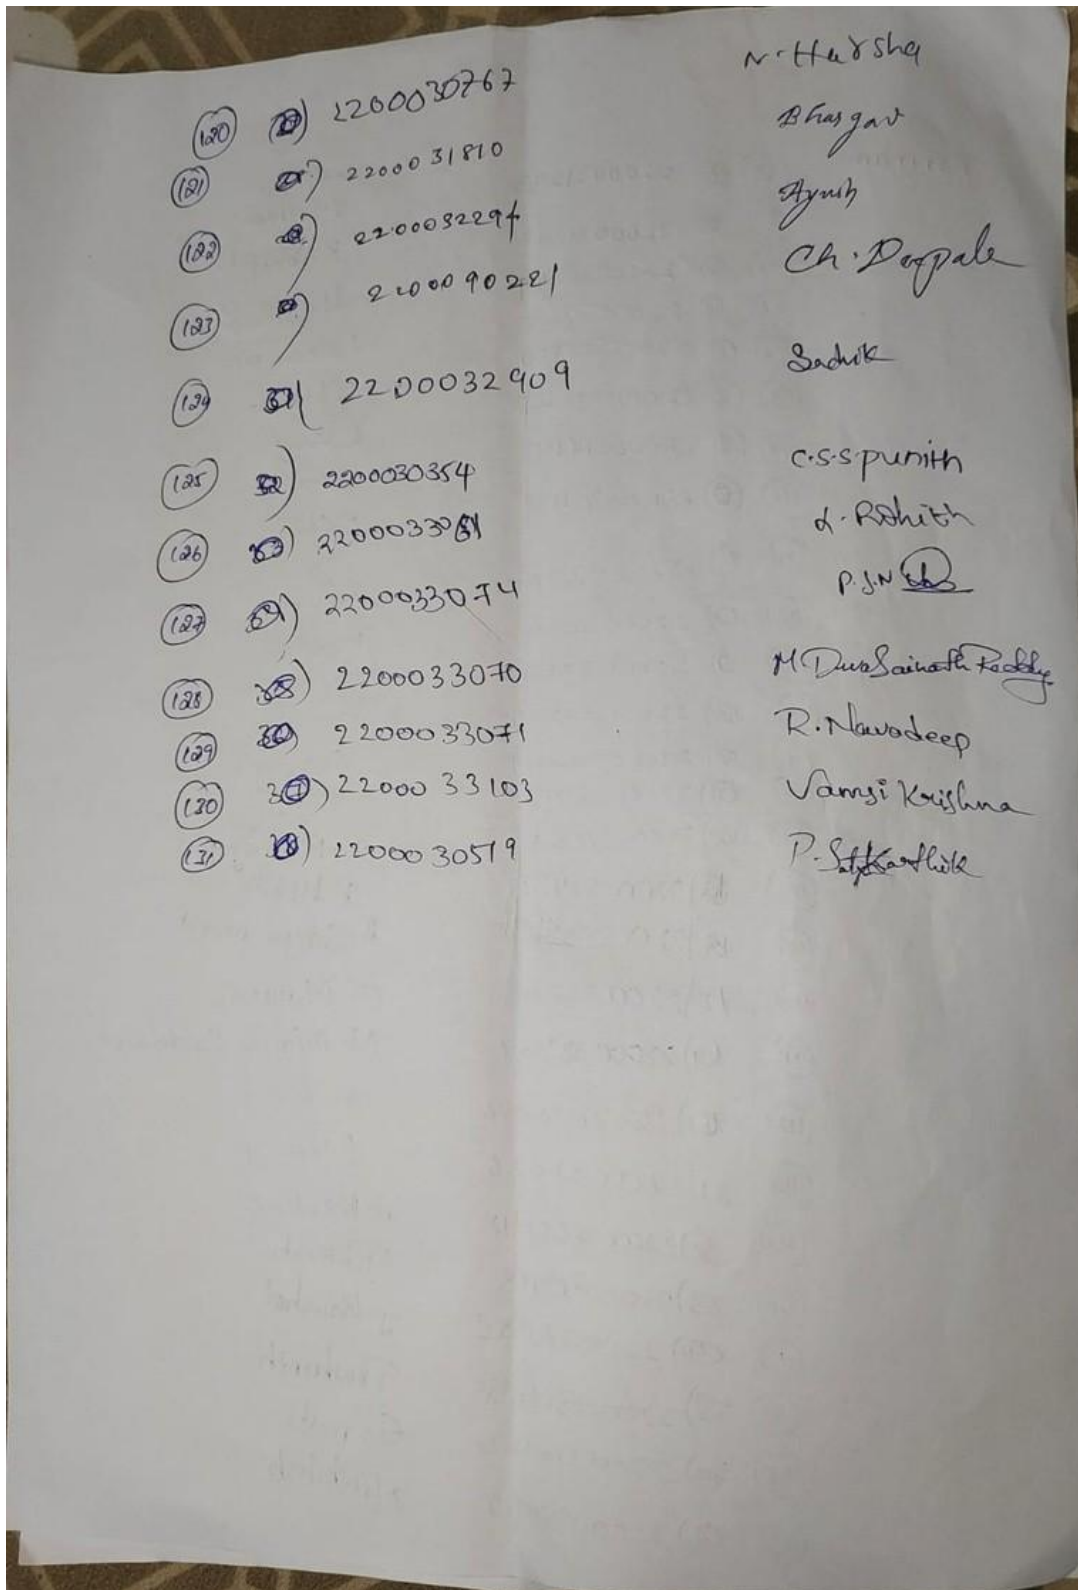 120 2200030767 N. Harsha
121 2200031810 Bhargav
122 220003229 Ayush
123 2200090221 Ch. Deepak
124 31 2200032909 Sadvik
125 32) 2200030354 C.S.S.punith
126 33) 22000330 L. Rohith
127 34) 2200033074 P.S.N
128 35) 2200033070 M Deva Sainath Reddy
129 36) 2200033071 R. Navadeep
130 37) 2200033103 Vamsi Krishna
131 2200030519 P. Karthik